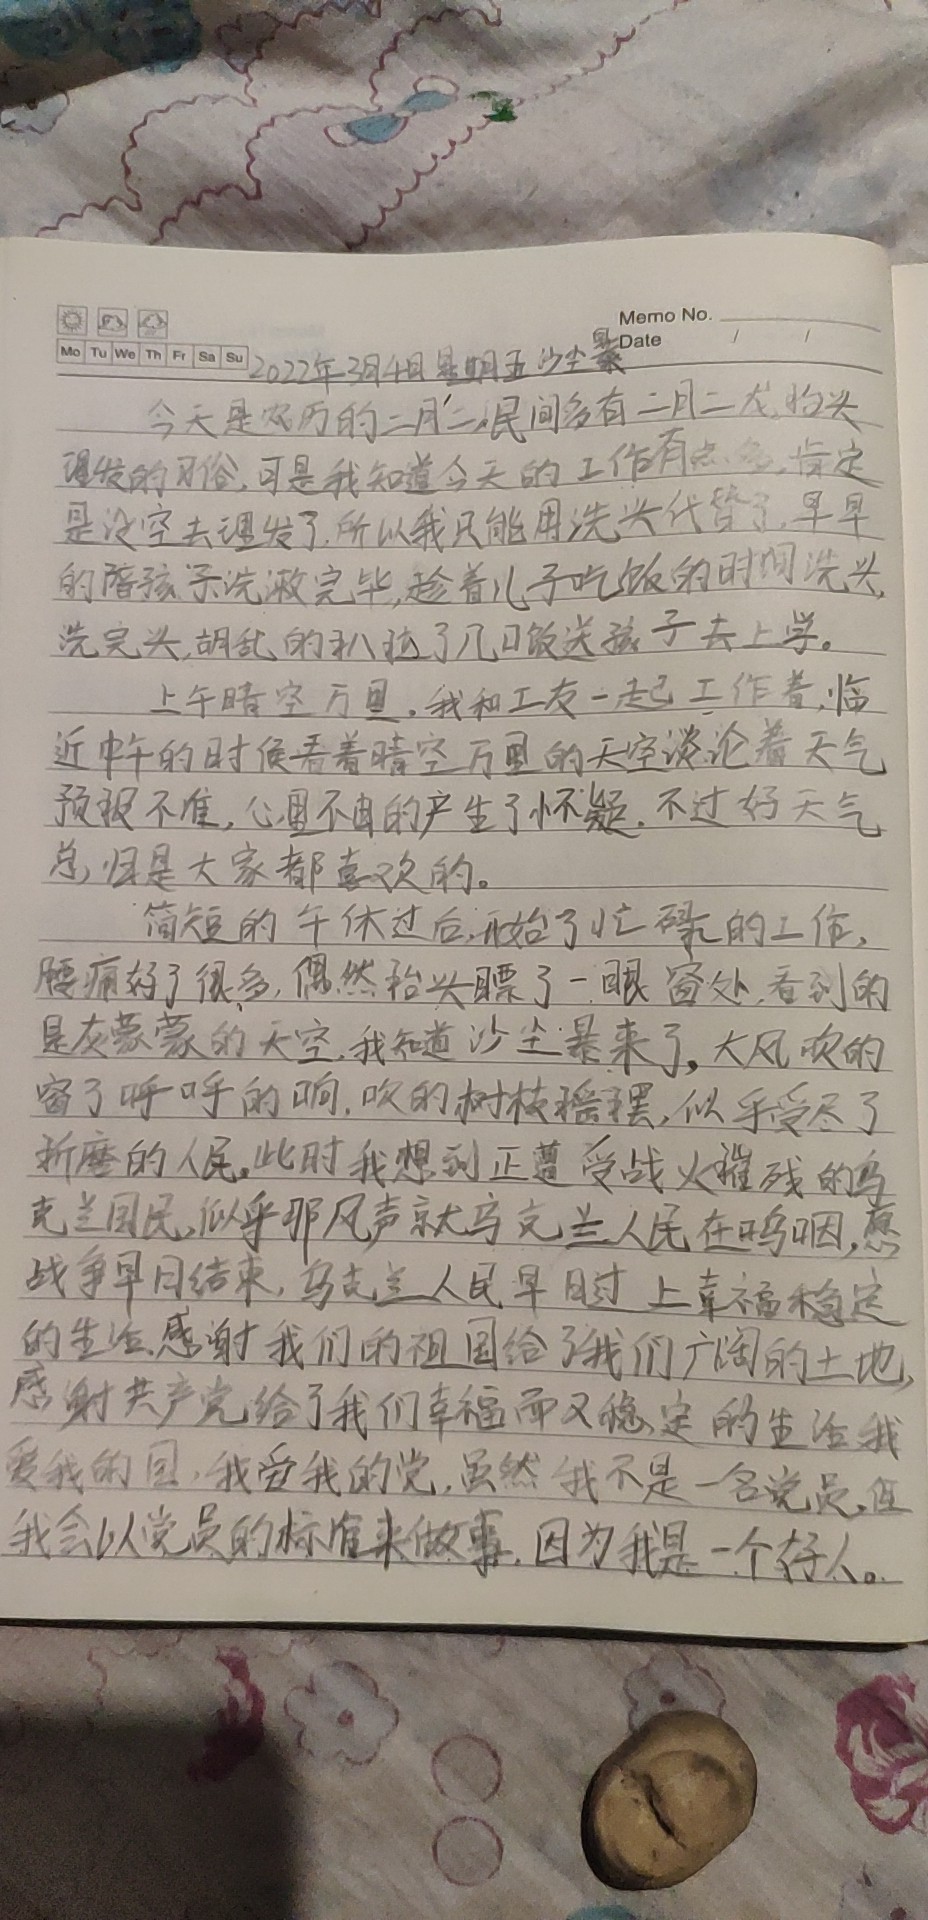 Memo No.
Date / /
Mo Tu We Th Fr Sa Su
2022年3月4日 星期五 沙尘暴
今天是农历的二月二,民间多有二月二龙抬头
理发的习俗,可是我知道今天的工作有点多,肯定
是没空去理发了,所以我只能用洗头代替了,早早
的陪孩子洗漱完毕,趁着儿子吃饭的时间洗头,
洗完头,胡乱的扒拉了几口饭送孩子去上学。
上午晴空万里,我和工友一起工作着,临
近中午的时候看着晴空万里的天空谈论着天气
预报不准,心里不由的产生了怀疑,不过好天气
总归是大家都喜欢的。
简短的午休过后,开始了忙碌的工作,
腰痛好了很多,偶然抬头瞟了一眼窗外,看到的
是灰蒙蒙的天空,我知道沙尘暴来了。大风吹的
窗了呼呼的响,吹的树枝摇摆,似乎受尽了
折磨的人民,此时我想到正遭受战火摧残的乌
克兰国民,似乎那风声就乌克兰人民在呜咽,愿
战争早日结束,乌克兰人民早日过上幸福稳定
的生活,感谢我们的祖国给了我们广阔的土地,
感谢共产党给了我们幸福而又稳定的生活我
爱我的国,我爱我的党,虽然我不是一名党员,但
我会以党员的标准来做事,因为我是一个好人。